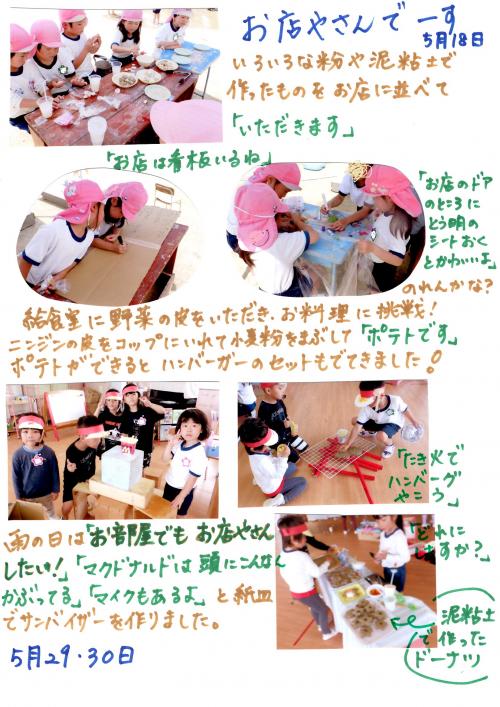 お店やさんでーす
5月18日
いろいろな粉や泥粘土で
作ったものをお店に並べて
「いただきます」
「お店は看板いるね」
「お店のドア
のところに
とう明の
シートおく
とかわいいよ」
のれんかな?
給食室に野菜の皮をいただき、お料理に挑戦!
ニンジンの皮をコップにいれて小麦粉をまぶして「ポテトです」
ポテトができると ハンバーガーのセットもでてきました!
「たき火で
ハンバーグ
やこう」
雨の日は「お部屋でも お店やさん
したい!」「マクドナルドは 頭にこんなん
かぶってる」「マイクもあるよ」と紙皿
でサンバイザーを作りました。
5月29・30日
「どれに
しますか?」
泥粘土
で作った
ドーナツ